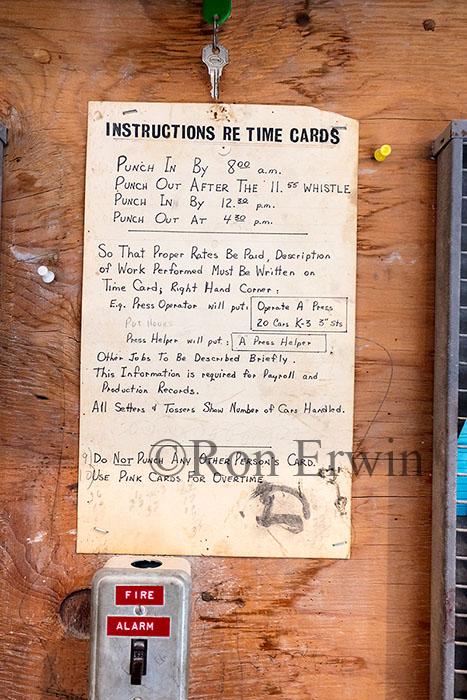 INSTRUCTIONS RE TIME CARDS
PUNCH IN BY 8:00 a.m.
PUNCH OUT AFTER THE 11.55 WHISTLE
PUNCH IN BY 12.30 p.m.
PUNCH OUT AT 4:30 p.m.
So That Proper Rates Be Paid, Description
of Work Performed Must Be Written on
Time Card; Right Hand Corner:
E.g. Press Operator will put: Operate A Press
20 Cars K-3 3" Sts
Put Hours
Press Helper will put: A Press Helper
Other Jobs To Be Described Briefly.
This Information is required for Payroll and
Production Records.
All Setters & Tossers Show Number of Cars Handled.
©Ron Erwin
Do Not Punch Any Other Person's Card.
Use Pink Cards For Overtime
FIRE
ALARM